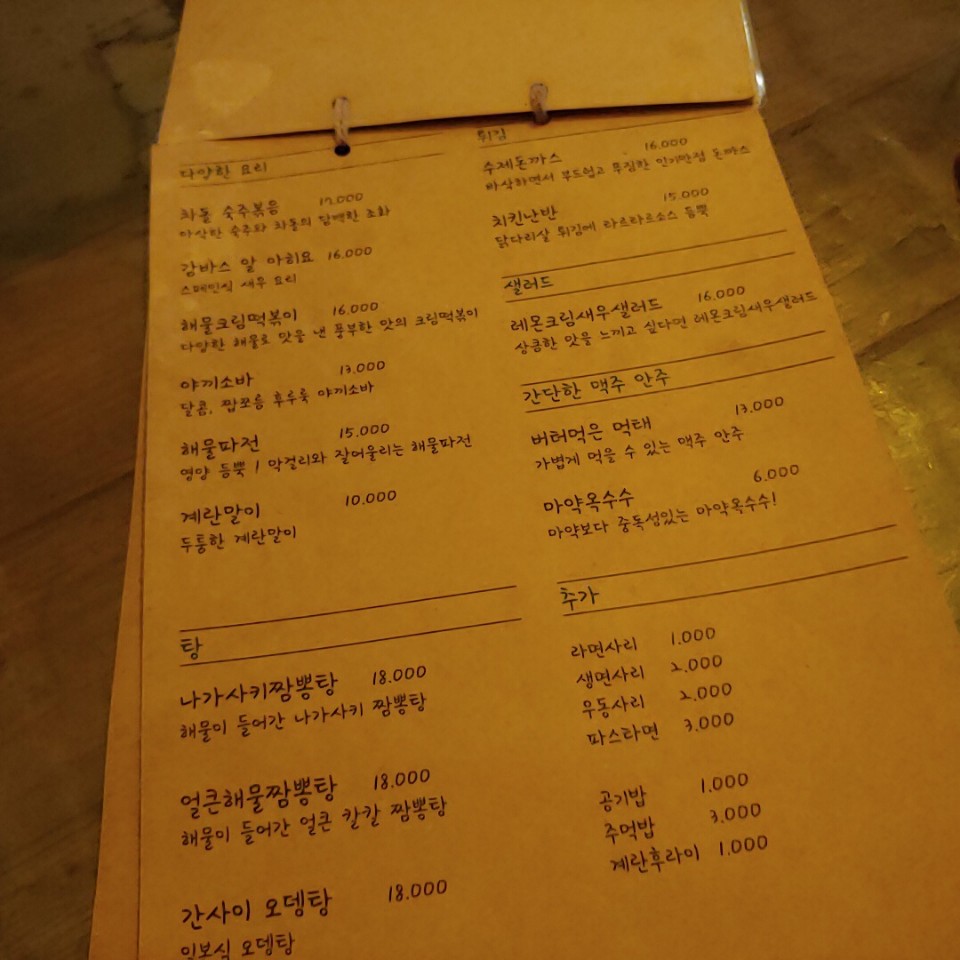 다양한 요리
차돌 숙주볶음 17.000
아삭한 숙주와 차돌의 담백한 조화
감바스 알 아히요 16.000
스페인식 새우 요리
해물크림떡볶이 16.000
다양한 해물로 맛을 낸 풍부한 맛의 크림떡볶이
야끼소바 13.000
달콤, 짭쪼름 후루룩 야끼소바
해물파전 15.000
영양 듬뿍! 막걸리와 잘어울리는 해물파전
계란말이 10.000
두툼한 계란말이
탕
나가사키짬뽕탕 18.000
해물이 들어간 나가사키 짬뽕탕
얼큰해물짬뽕탕 18.000
해물이 들어간 얼큰 칼칼 짬뽕탕
간사이 오뎅탕 18.000
일본식 오뎅탕
튀김
수제돈까스 16.000
바삭하면서 부드럽고 푸짐한 인기만점 돈까스
치킨난반 15.000
닭다리살 튀김에 타르타르소스 듬뿍
샐러드
레몬크림새우샐러드 16.000
상큼한 맛을 느끼고 싶다면 레몬크림새우샐러드
간단한 맥주 안주
버터먹은 먹태 13.000
가볍게 먹을 수 있는 맥주 안주
마약옥수수 6.000
마약보다 중독성있는 마약옥수수!
추가
라면사리 1.000
생면사리 2.000
우동사리 2.000
파스타면 3.000
공기밥 1.000
주먹밥 3.000
계란후라이 1.000